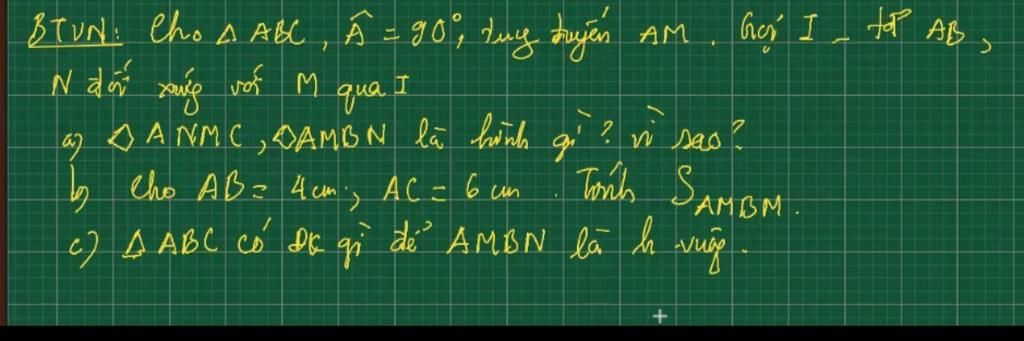 BTVN: Cho △ ABC, Â = 90°, trung tuyến AM. Gọi I - tđ AB,
N đối xứng với M qua I
a) ◇ ANMC, ◇AMBN là hình gì? vì sao?
b) Cho AB = 4 cm; AC = 6 cm. Tính S_AMBM.
c) △ ABC có ĐK gì để AMBN là h vuông.